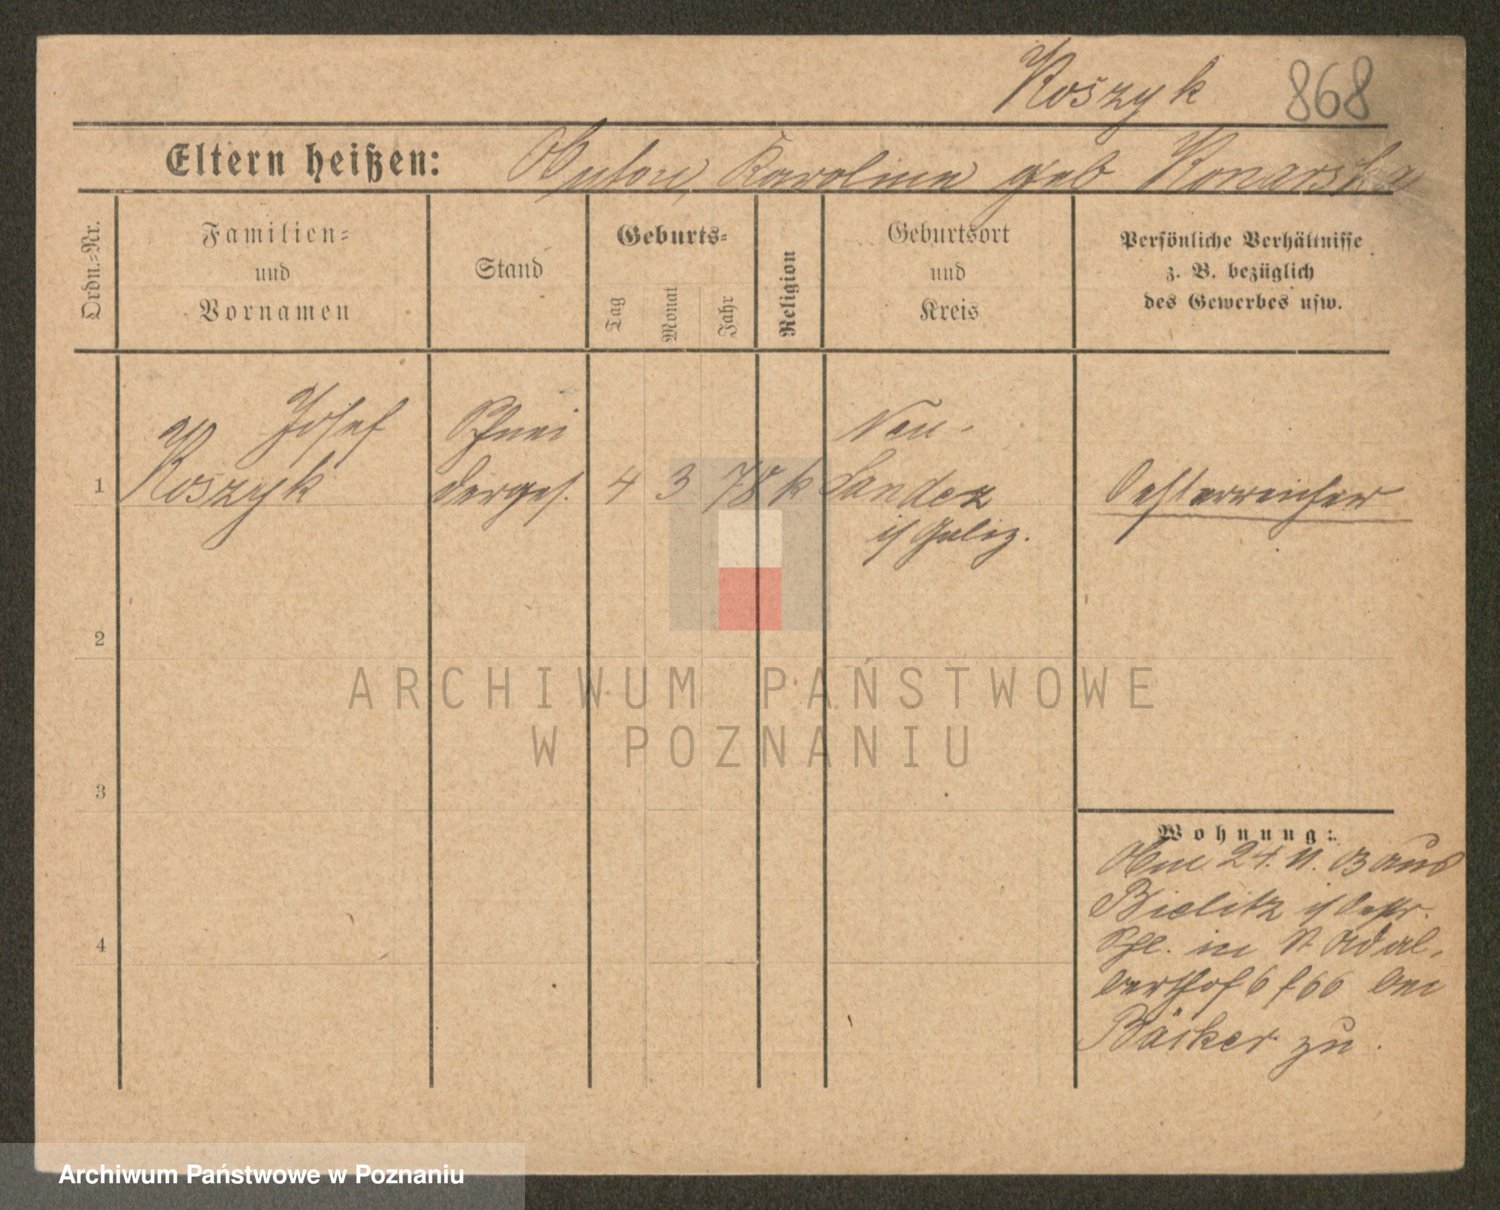 Koszyk 868
Eltern heißen: Anton, Karolina geb Konarska
Ordn.-Nr.
Familien-
und
Vornamen
Stand
Geburts-
Tag
Monat
Jahr
Religion
Geburtsort
und
Kreis
Persönliche Verhältnisse
z. B. bezüglich
des Gewerbes usw.
Josef
Koszyk
Schnei
derges.
1
4 3 78 k
Neu-
Sandez
i/ Galiz.
Oesterreicher
2
3
4
Wohnung:
Am 24. 11. 03 aus
Bielitz i/ Oestr.
Schl. in St Adal-
berthof 6 f 66 bei
Bäcker zu.
ARCHIWUM PAŃSTWOWE
W POZNANIU
Archiwum Państwowe w Poznaniu